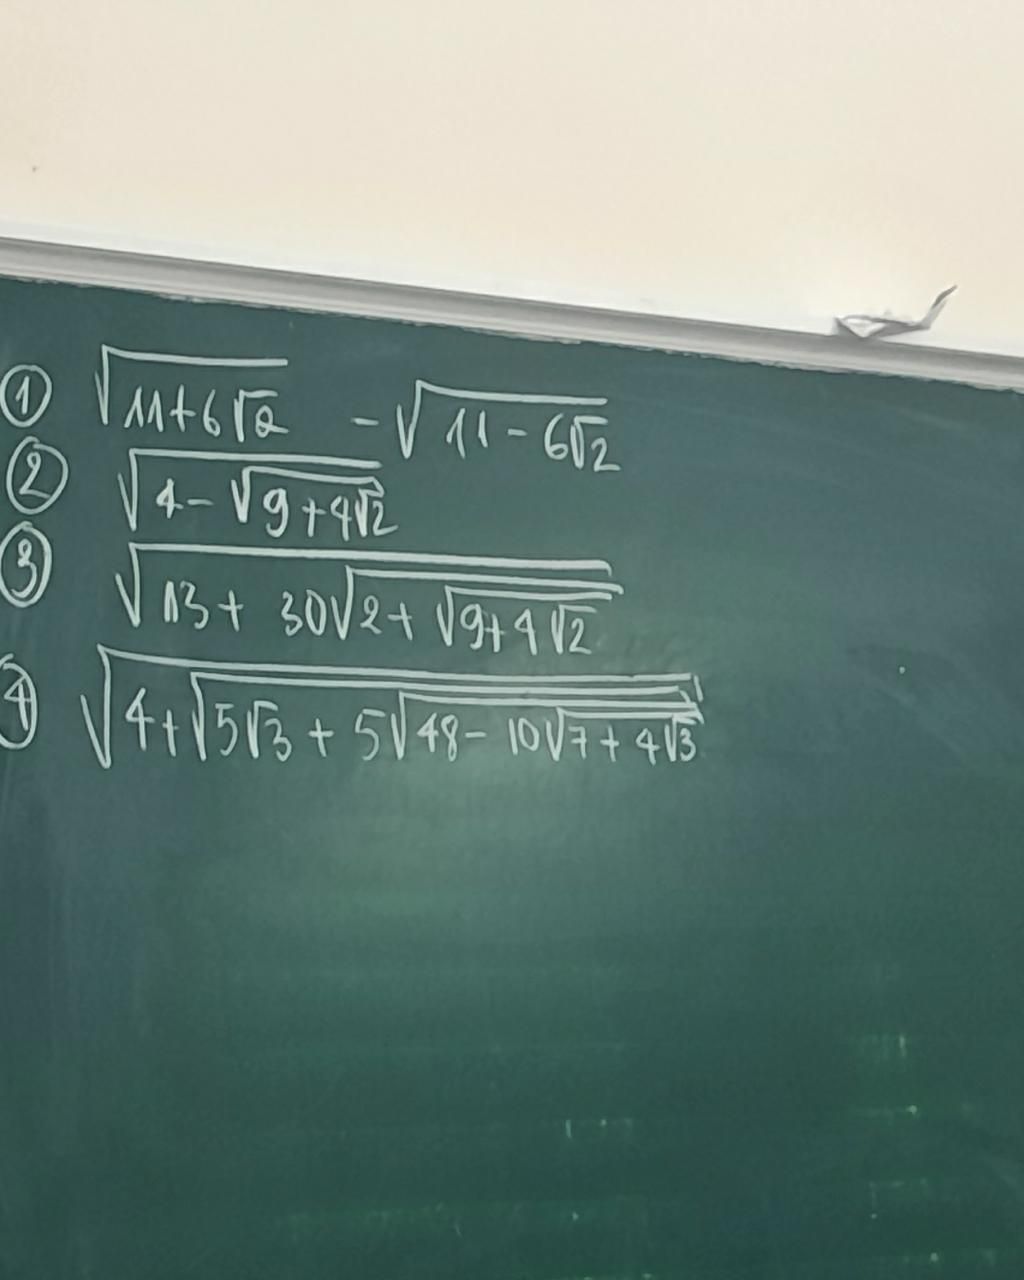 ① √(11+6√2) - √(11-6√2)
② √(4-√(9+4√2))
③ √(13+30√(2+√(9+4√2)))
④ √(4+√(5√3+5√(48-10√(7+4√3))))